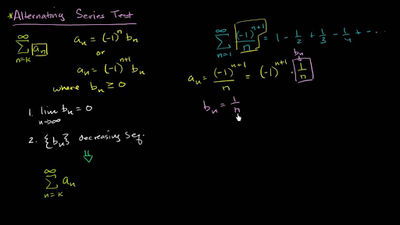 *Alternating Series Test
∞
∑ aₙ
n=k
aₙ = (-1)ⁿ bₙ
or
aₙ = (-1)ⁿ⁺¹ bₙ
where bₙ ≥ 0
1. lim bₙ = 0
n→∞
2. {bₙ} decreasing seq.
⇓
∞
∑ aₙ
n=k
∞
∑ (-1)ⁿ⁺¹/n = 1 - 1/2 + 1/3 - 1/4 + - ...
n=1
bₙ
aₙ = (-1)ⁿ⁺¹/n = (-1)ⁿ⁺¹ · 1/n
bₙ = 1/n